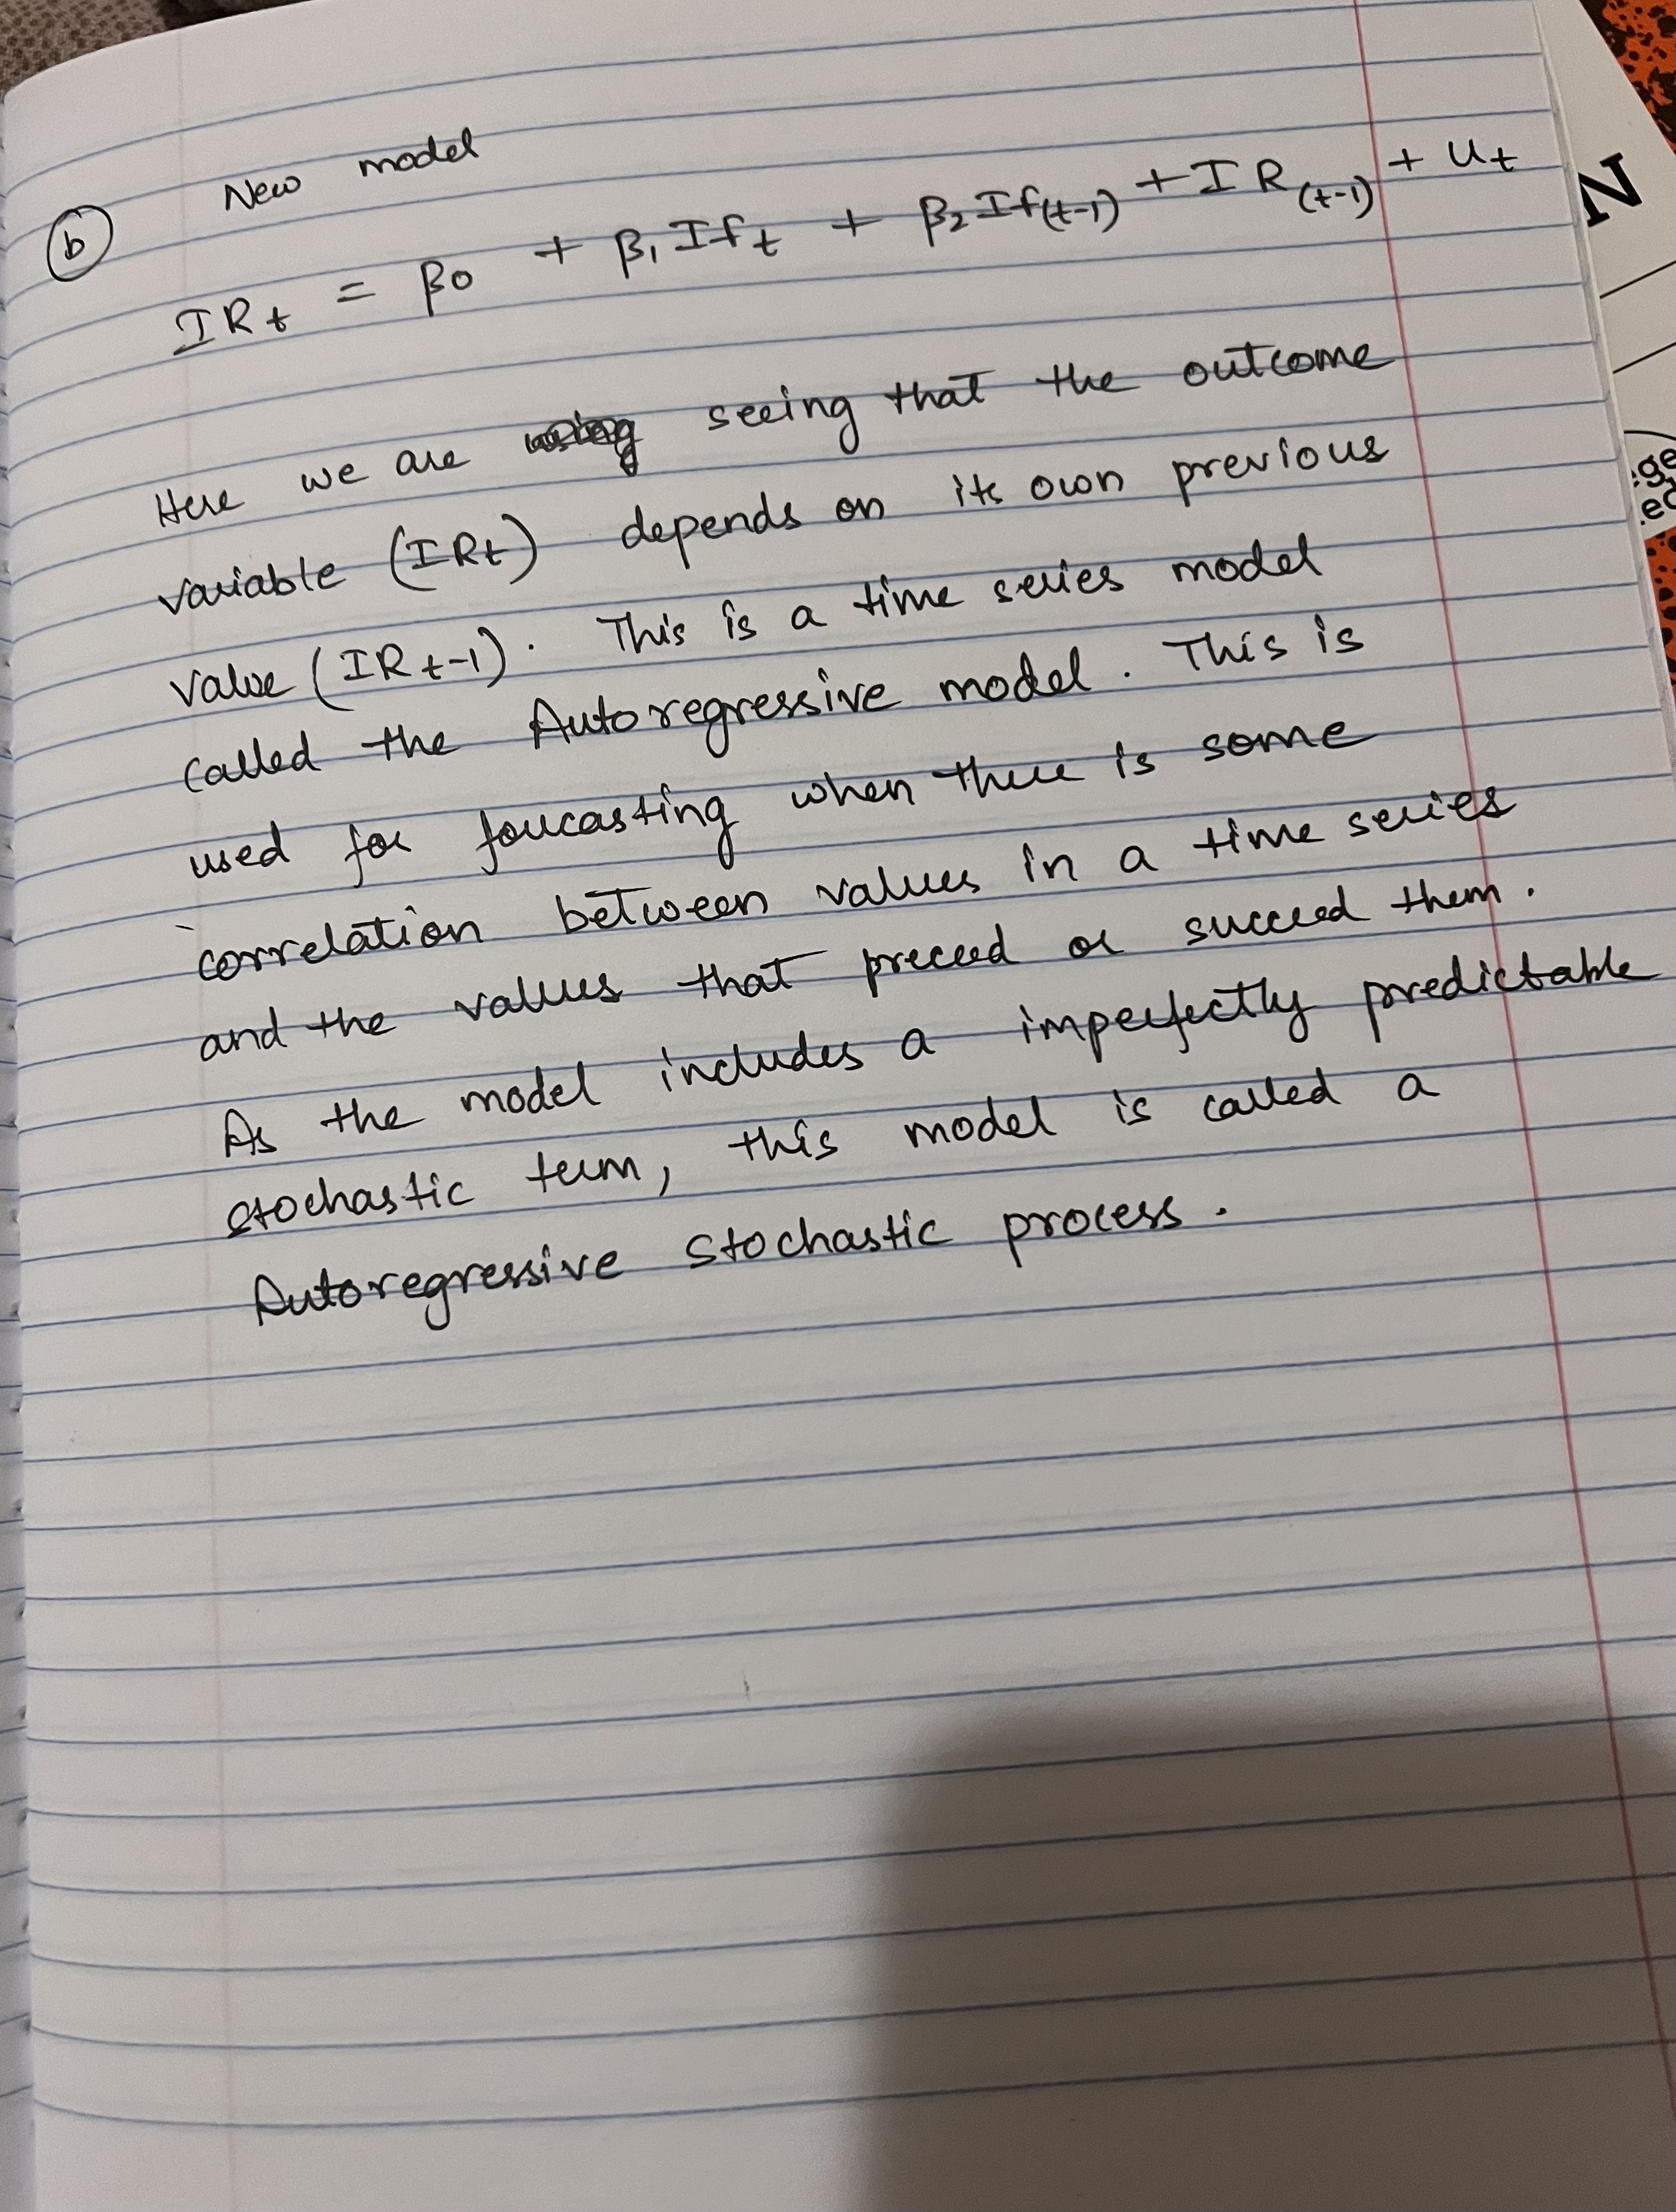 (b) New model
IRt = β0 + β1 Ift + β2 If(t-1) + IR(t-1) + Ut
Here we are seeing that the outcome
variable (IRt) depends on its own previous
value (IRt-1). This is a time series model
called the Autoregressive model. This is
used for forecasting when there is some
correlation between values in a time series
and the values that preceed or succeed them.
As the model includes a imperfectly predictable
stochastic term, this model is called a
Autoregressive stochastic process.
N